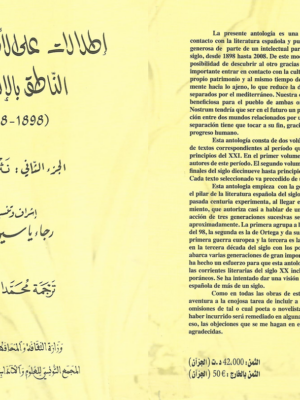 إطلالات على الأ
الناطق بالإ
8-1898)
الجزء الثاني: نث
إشراف وتق
رجاء ياسين
ترجمة محمد
وزارة الثقافة والمحافظ
المجمع التونسي للعلوم والآداب
La presente antología es una
contacto con la literatura española y pu
generosa de parte de un intelectual par
siglo, desde 1898 hasta 2008. De este mod
posibilidad de descubrir al otro gracias
importante entrar en contacto con la cult
propio patrimonio y al mismo tiempo de
mente hacia lo ajeno, lo que reduce la d
separados por el mediterráneo. Nuestra
beneficiosa para el pueblo de ambas o
Nostrum tendría que ser en el futuro un p
ción entre dos mundos relacionados por u
separación tiene que tocar a su fin, graci
progreso humano.
Esta antología consta de dos volú
de textos correspondientes al período qu
principios del XXI. En el primer volumen
autores de este período. El segundo volum
finales del siglo diecinueve hasta principio
Cada texto seleccionado va precedido de
Esta antología empieza con la g
el pilar de la literatura española del siglo
pasada centuria experimenta, al llegar e
miento, que autoriza casi a hablar de un
acción de tres generaciones sucesivas se
aproximadamente. La primera agrupa a l
del 98, la segunda es la de Ortega y da su
primera guerra europea y la tercera es la
en la tercera década del siglo con los po
abarca varias generaciones de gran impor
ha hecho un esfuerzo para que esta antol
las corrientes literarias del siglo XX inclu
poráneos. Se ha intentado dar una visión
española de más de un siglo.
Como en todas las obras de est
aventura a la enojosa tarea de incluir a
omisiones de tal o cual poeta o novelista
haber incurrido será remediado en algun
eso, las objeciones que se me hagan en e
agradecidas.
الثمن: 42.000 د.ت (الجزآن)
الثمن بالخارج: 50€ (الجزآن)